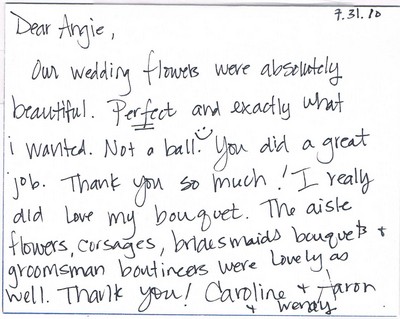 7.31.10
Dear Angie,
Our wedding flowers were absolutely
beautiful. Perfect and exactly what
i wanted. Not a ball. You did a great
job. Thank you so much! I really
did love my bouquet. The aisle
flowers, corsages, bridesmaids bouquets +
groomsman boutineers were lovely as
well. Thank you! Caroline + Aaron
+ Wendy